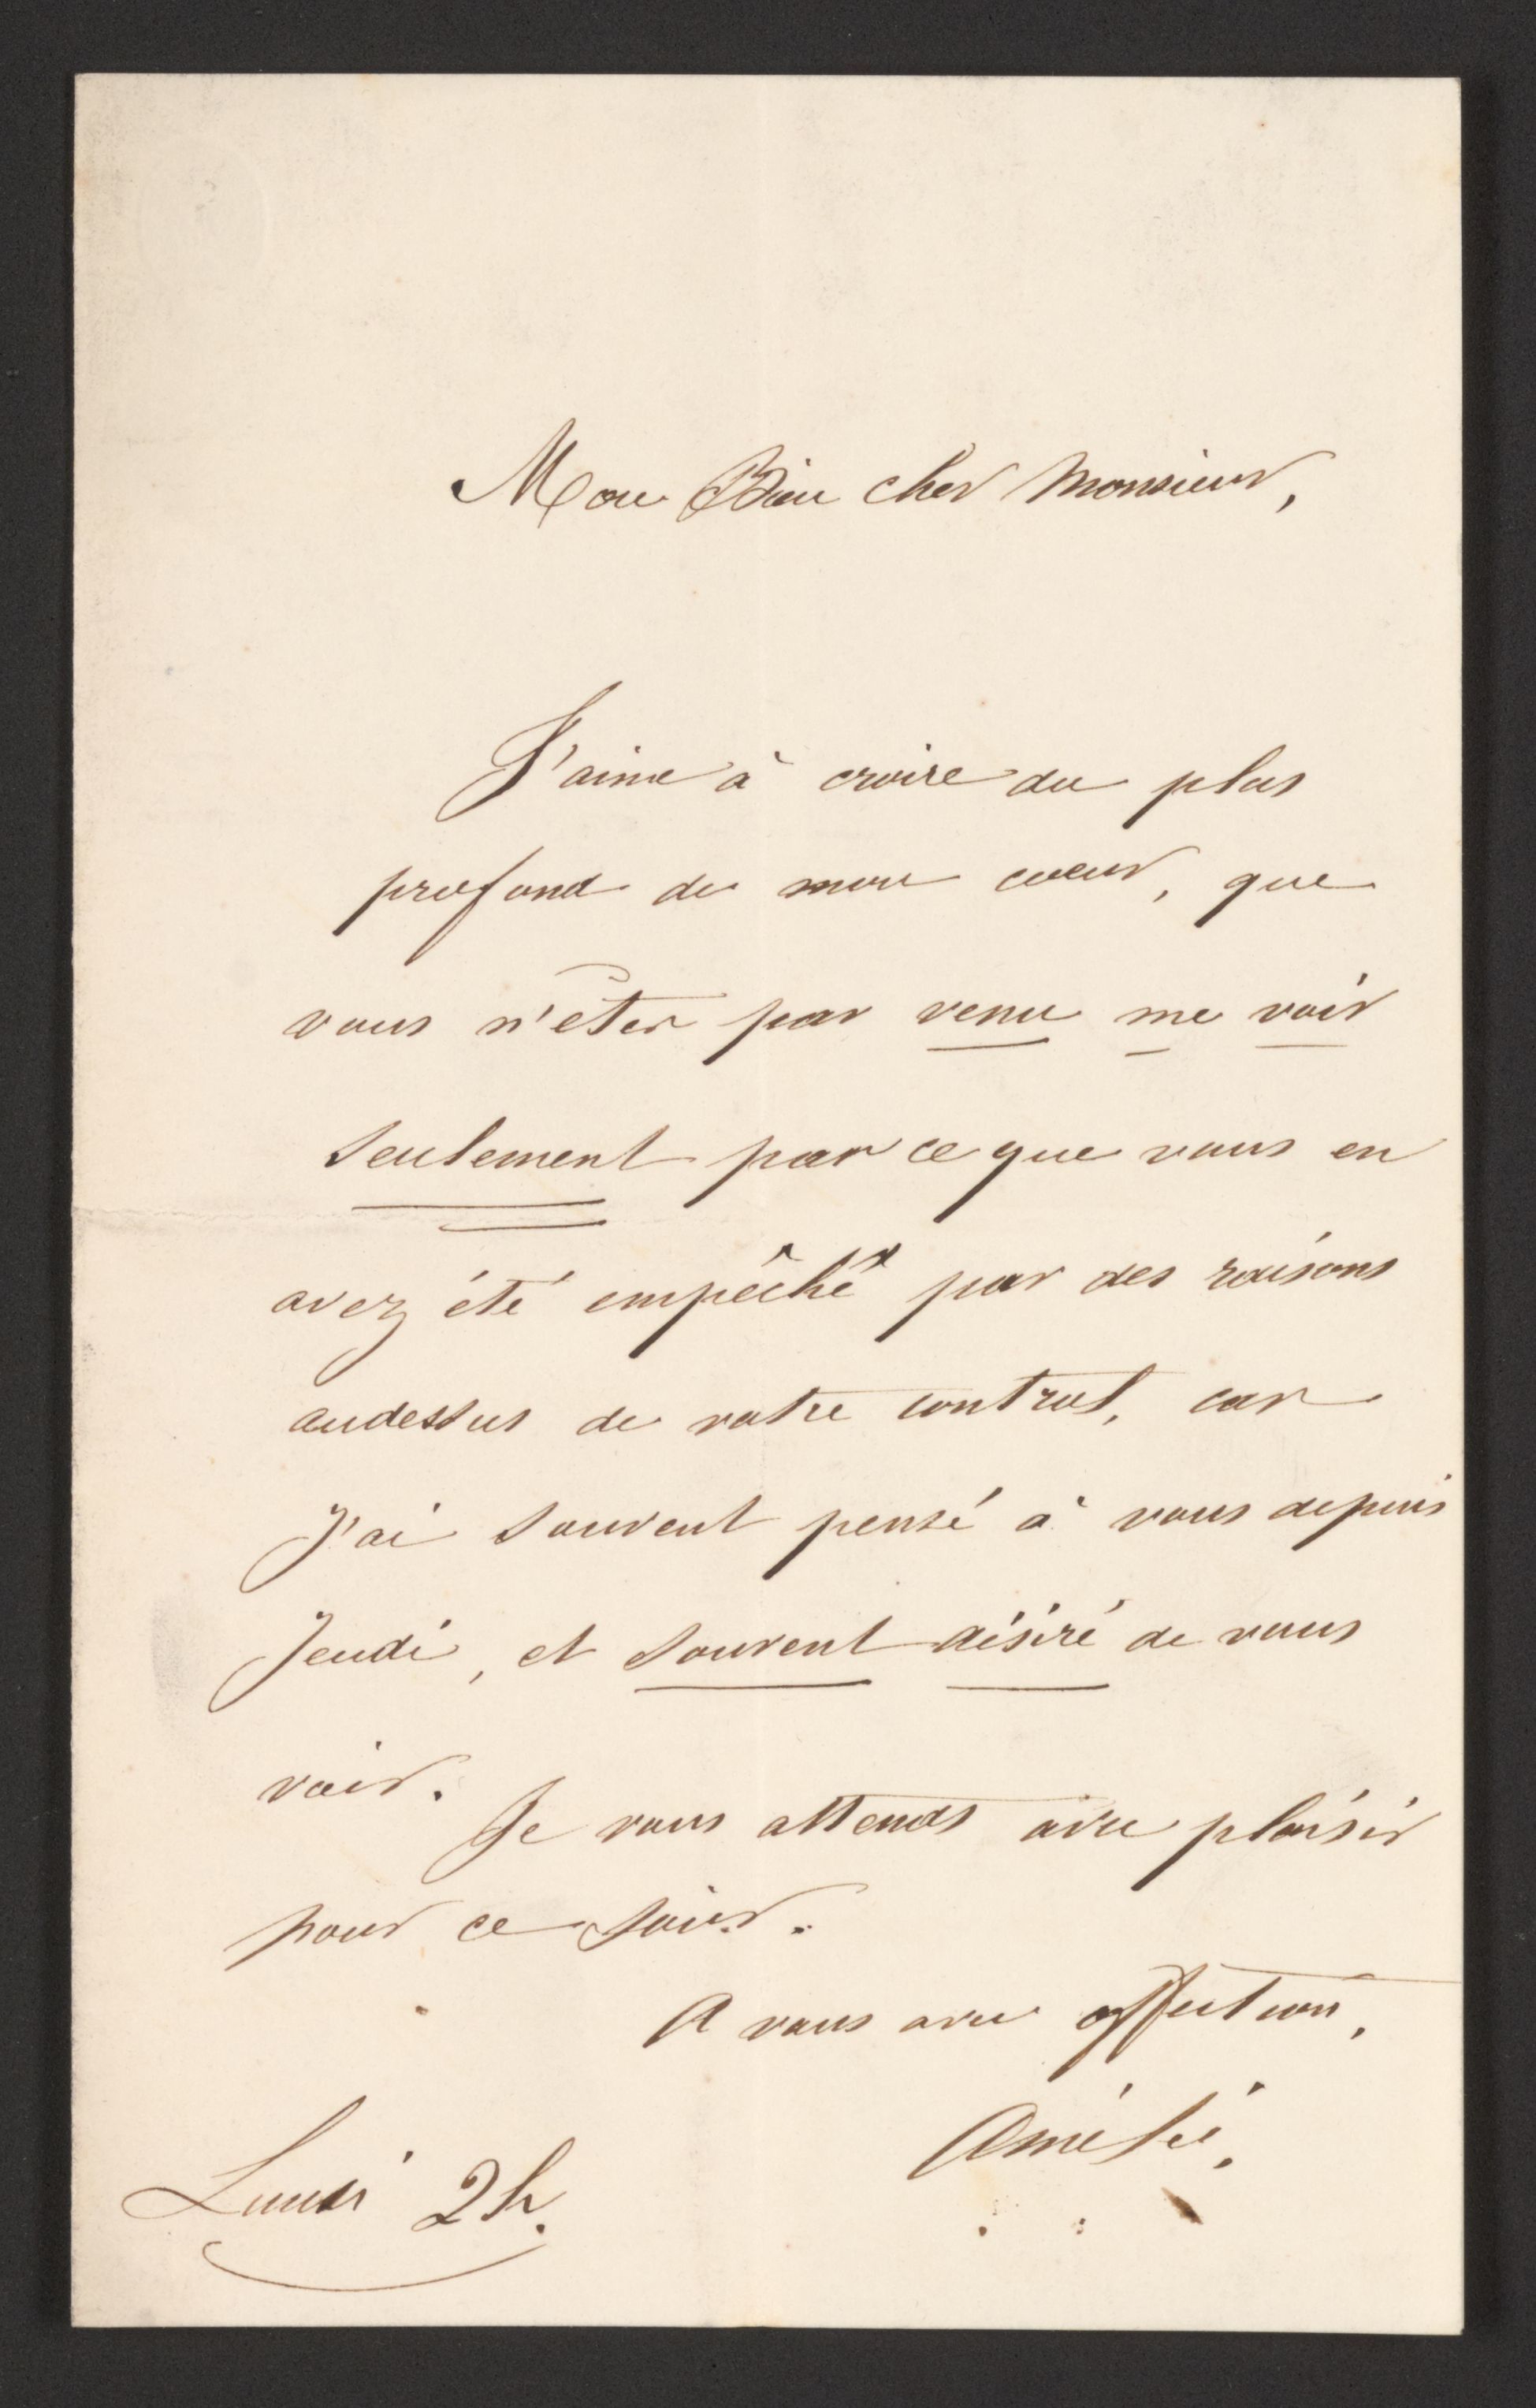 Mon Bien cher Monsieur,
J'aime à croire du plus
profond de mon coeur, que
vous n'êtes pas venu me voir
seulement par ce que vous en
avez été empêché par des raisons
audessus de votre control, car
J'ai souvent pensé à vous depuis
Jeudi, et souvent désiré de vous
voir.
Je vous attends avec plaisir
pour ce soir.
A vous avec affection,
Lundi 2h.